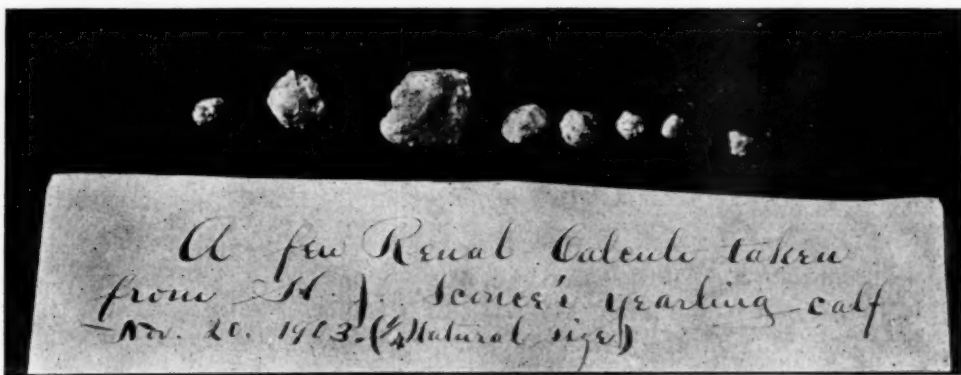 A few Renal Calculi taken
from H. J. Sconce's yearling calf
— Nov. 20. 1913. (¼ Natural size)